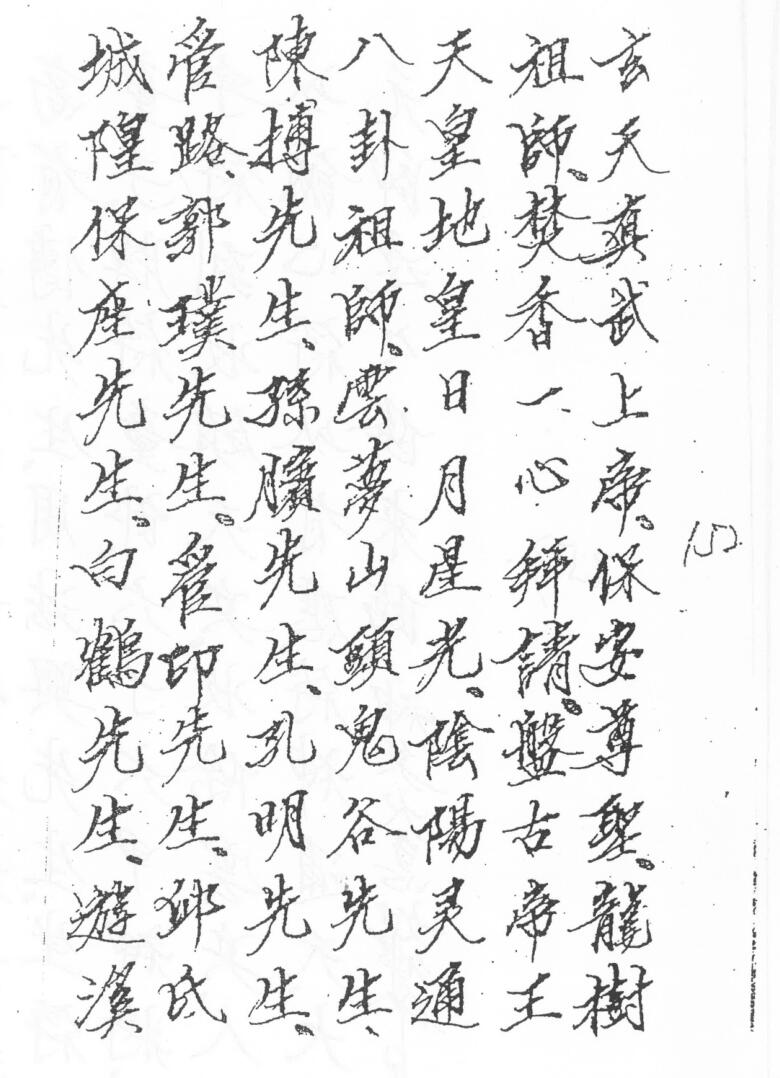 玄天真武上帝、保安尊聖、龍樹
祖師、焚香一心拜請、盤古帝王
天皇地皇日月星光、陰陽灵通
八卦祖師、雲夢山頭鬼谷先生、
陳摶先生、孫臏先生、孔明先生、
管路、郭璞先生、管印先生、邱氏
城隍保座先生、白鶴先生、遊溪
152